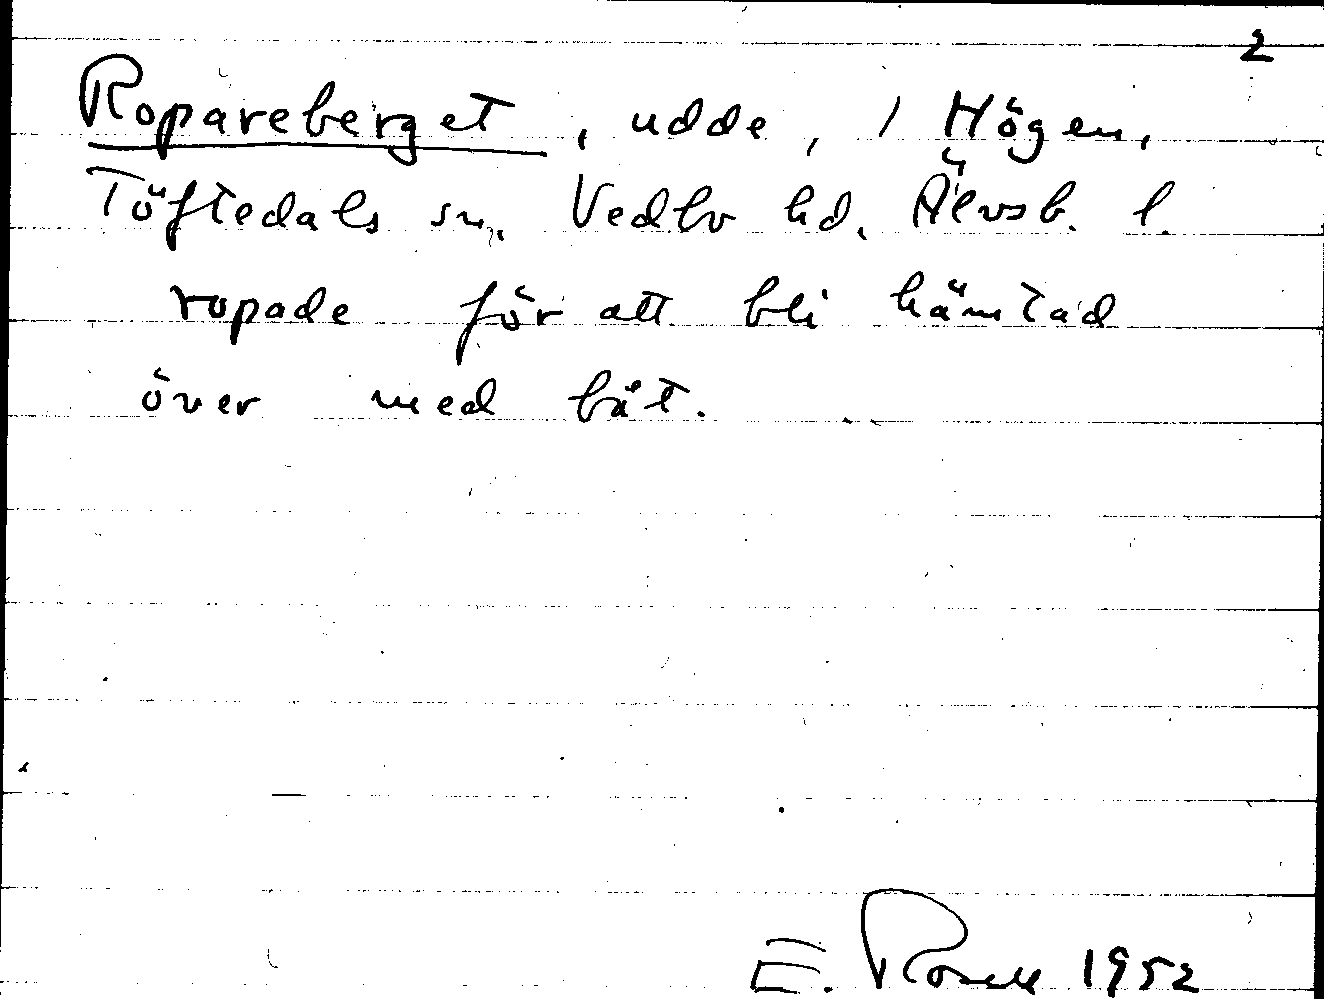 2
Ropareberget, udde, / Högen,
Töftedals sn, Vedbo hd, Älvsb. l.
ropade för att bli hämtad
över med båt.
E. Rosell 1952